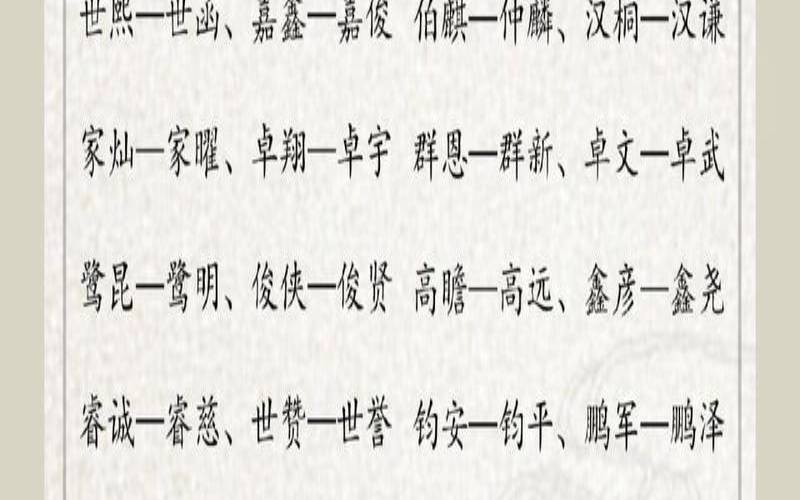 世熙一世函、嘉鑫一嘉俊 伯麒一仲麟、汉桐一汉谦
家灿一家曜、卓翔一卓宇 群恩一群新、卓文一卓武
鹭昆一鹭明、俊侠一俊贤 高瞻一高远、鑫彦一鑫尧
睿诚一睿慈、世赞一世誉 钧安一钧平、鹏军一鹏泽